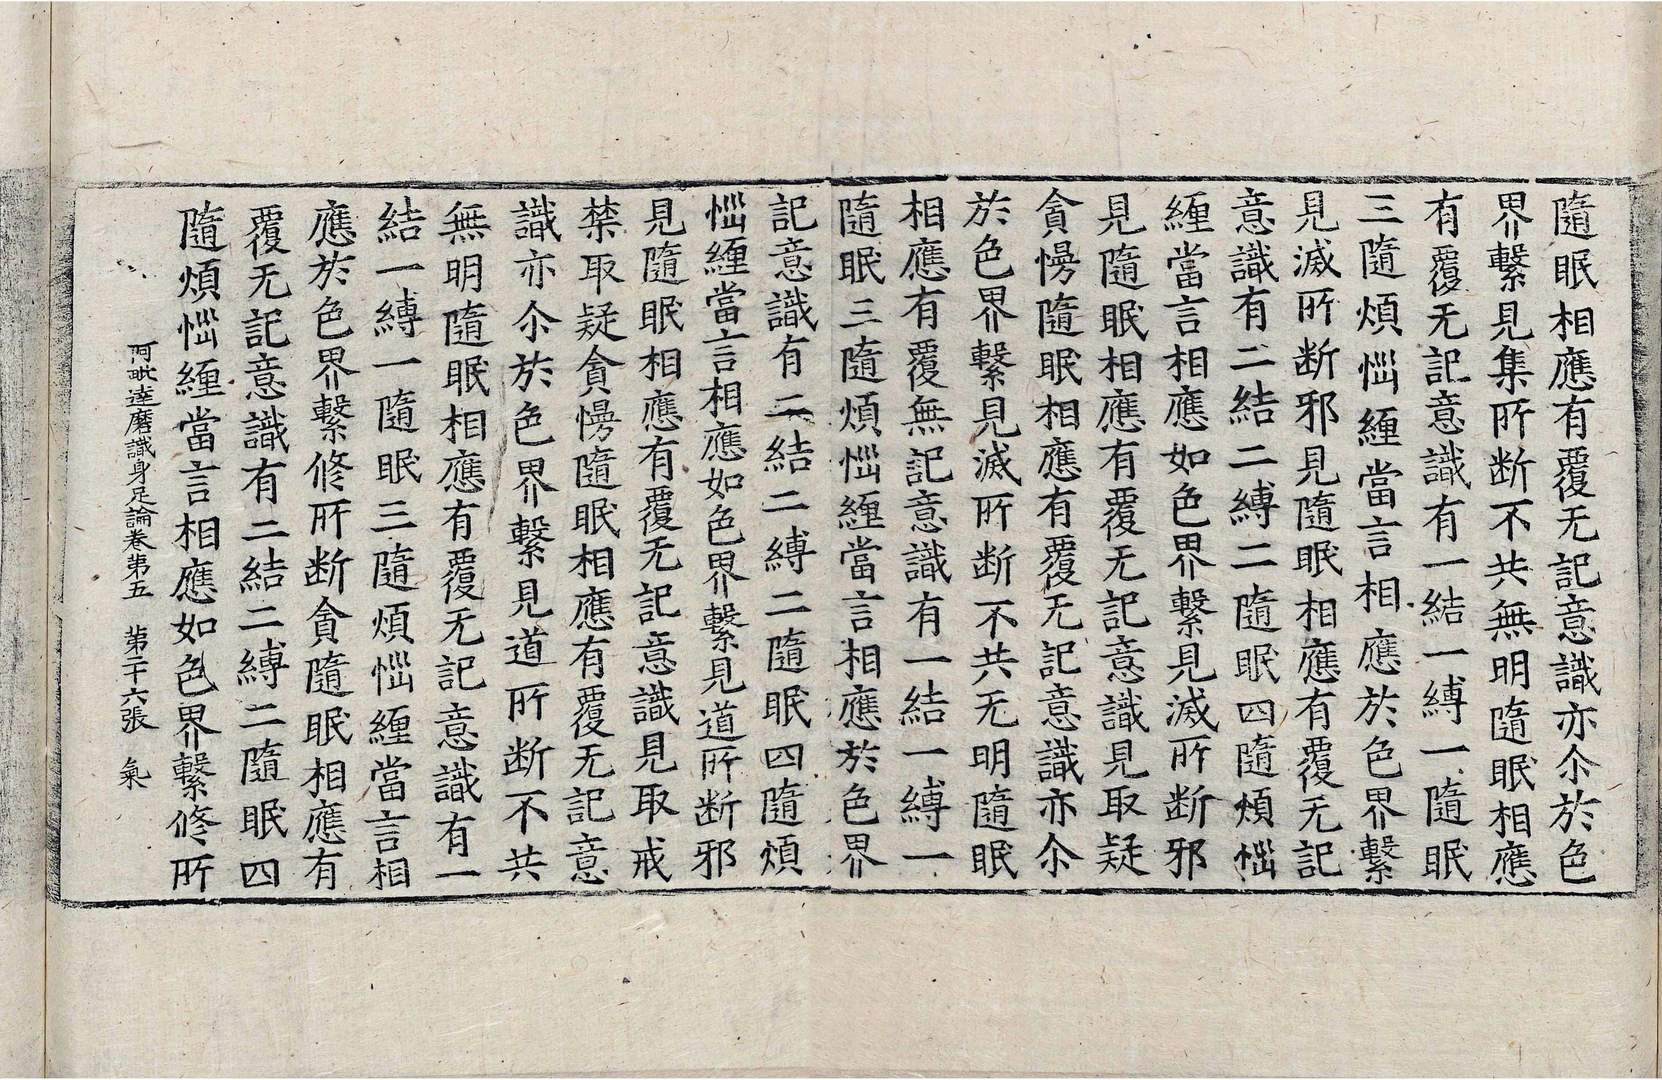 隨眠相應有覆无記意識亦尒於色
界繫見集所断不共無明隨眠相應
有覆无記意識有一結一縛一隨眠
三隨煩惱纏當言相應於色界繫
見滅所断邪見隨眠相應有覆无記
意識有二結二縛二隨眠四隨煩惱
纏當言相應如色界繫見滅所断邪
見隨眠相應有覆无記意識見取疑
貪慢隨眠相應有覆无記意識亦尒
於色界繫見滅所断不共无明隨眠
相應有覆無記意識有一結一縛一
隨眠三隨煩惱纏當言相應於色界
繫見道所断邪見隨眠相應有覆无
記意識有二結二縛二隨眠四隨煩
惱纏當言相應如色界繫見道所断邪
見隨眠相應有覆无記意識見取戒
禁取疑貪慢隨眠相應有覆无記意
識亦尒於色界繫見道所断不共
無明隨眠相應有覆无記意識有一
結一縛一隨眠三隨煩惱纏當言相
應於色界繫修所断貪隨眠相應有
覆无記意識有二結二縛二隨眠四
隨煩惱纏當言相應如色界繫修所
阿毗達磨識身足論卷第五　第二十六張　氣